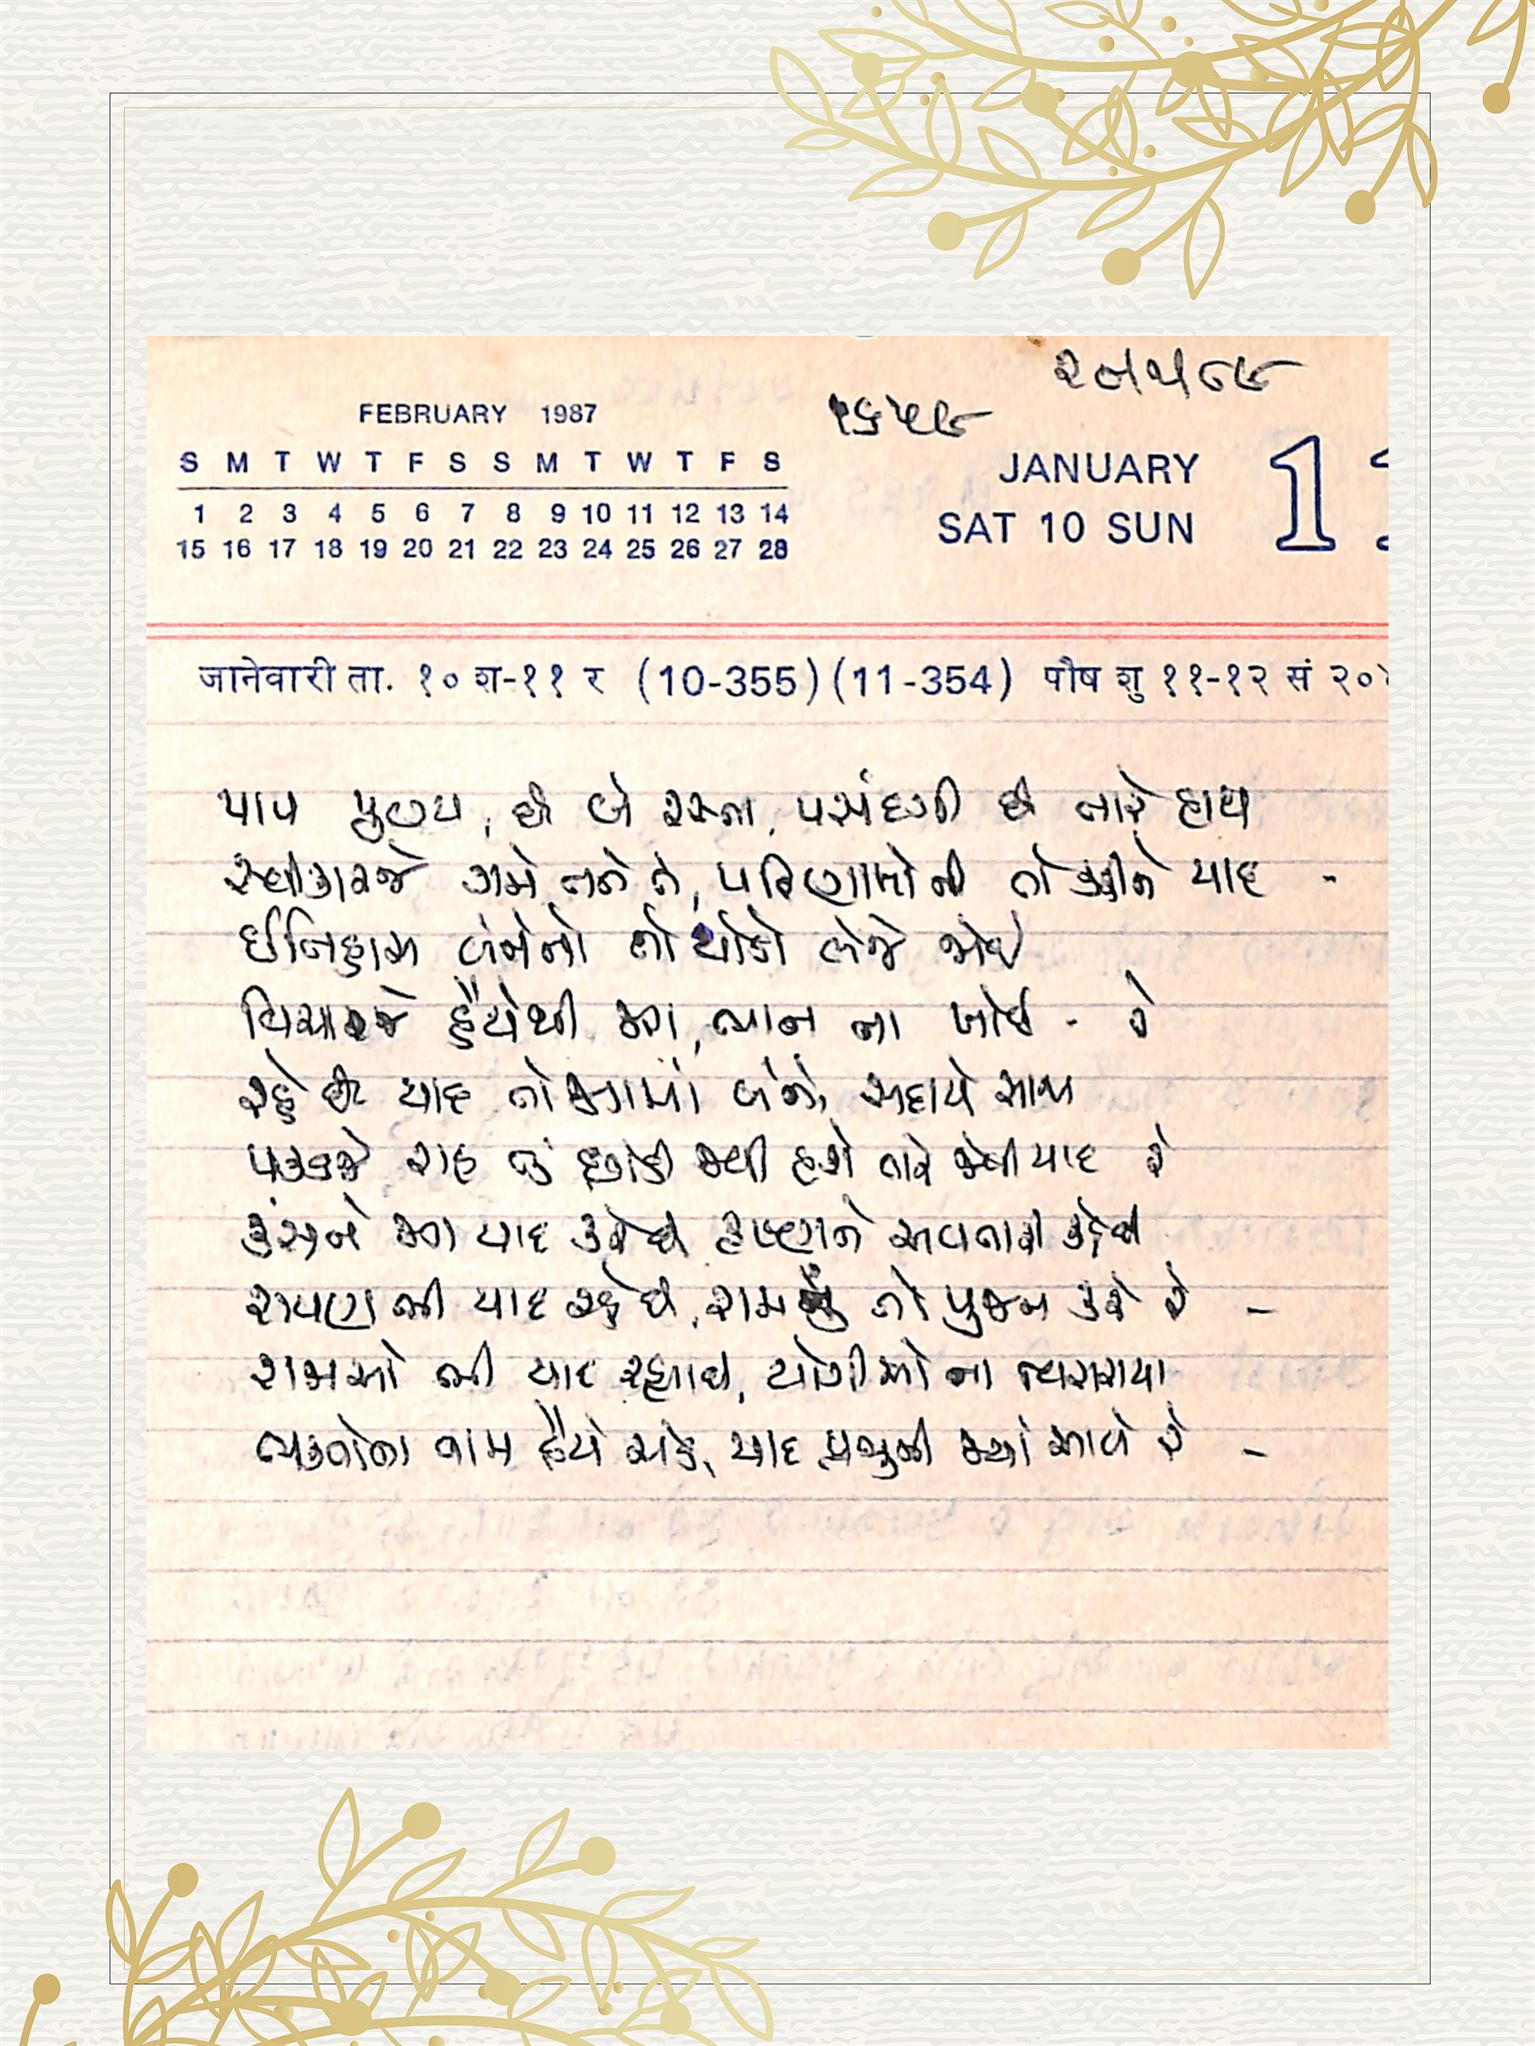 FEBRUARY 1987
S M T W T F S S M T W T F S
1 2 3 4 5 6 7 8 9 10 11 12 13 14
15 16 17 18 19 20 21 22 23 24 25 26 27 28
JANUARY
SAT 10 SUN 11
जानेवारी ता. १० श-११ र (10-355) (11-354) पौष शु ११-१२ सं २०
પાપ પુણ્ય, છે બે રસ્તા, પસંદગી છે તારે હાથ
સ્વીકારજે ગમે તને તે, પરિણામોની તો કરીને યાદ -
ઈતિહાસ બંનેનો તો થોડો લેજે જોઈ
વિચારજે હૈયેથી જરા, ભાન ના ખોઈ - રે
રહે છે યાદ તો જગમાં બંને, સદાયે સાથ
પકડજે રાહ તું છોડી જવી હશે તારે જેવી યાદ રે
કંસને જગ યાદ કરે છે કૃષ્ણને અવતારી કહે છે
રાવણ ભી યાદ રહે છે, રામનું તો પુજન કરે રે -
રાજાઓ ભી યાદ રહ્યા છે, યોગીઓ ના
ભક્તોના નામ હૈયે ચડે, યાદ પ્રભુની જ્યાં આવે રે -